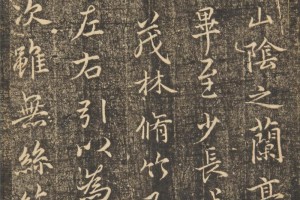 山陰之蘭亭
畢至少長
茂林脩竹
左右引以為
次雖無絲